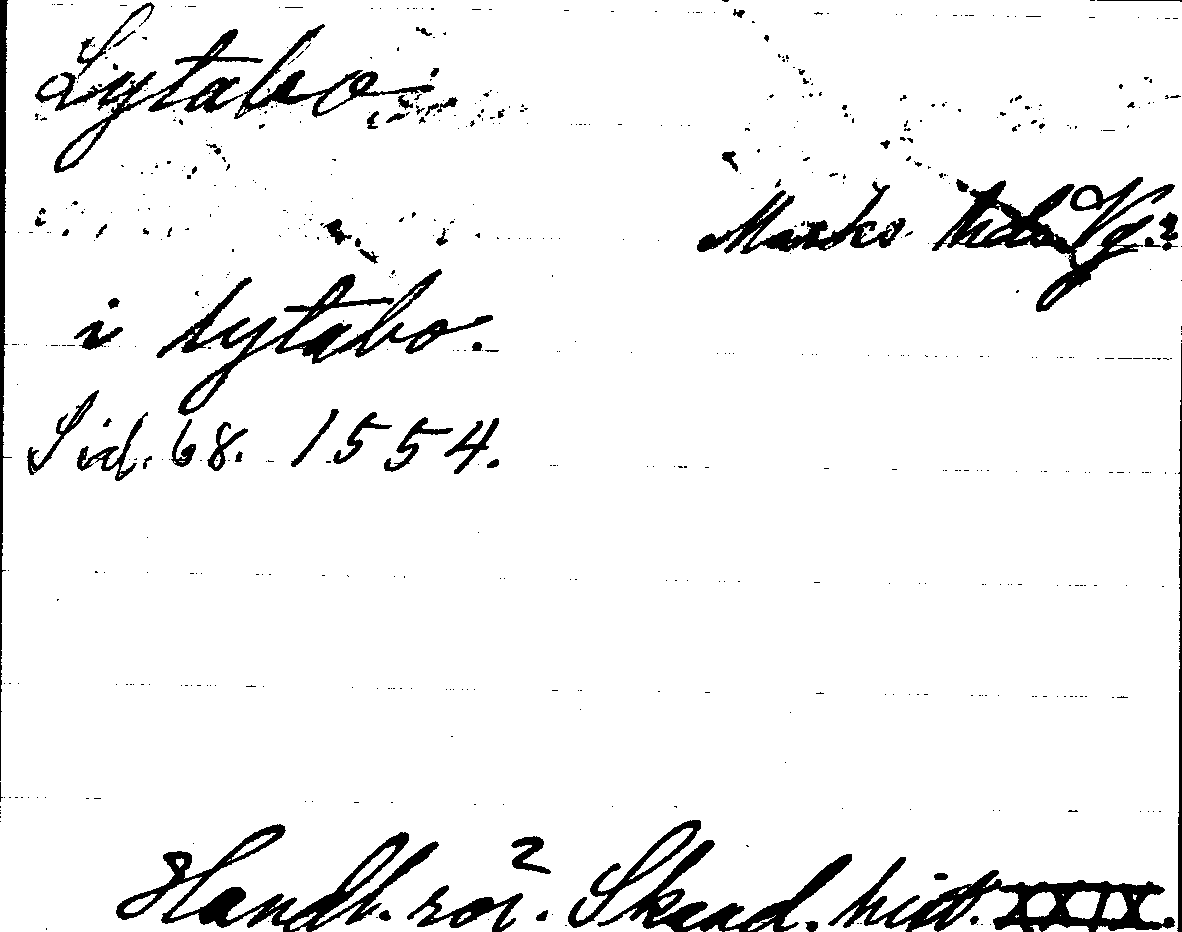 Lytabo
Marks hd. Vg.?
i lytabo.
Sid. 68. 1554.
Handl. rör. Skand. hist. XXIX.